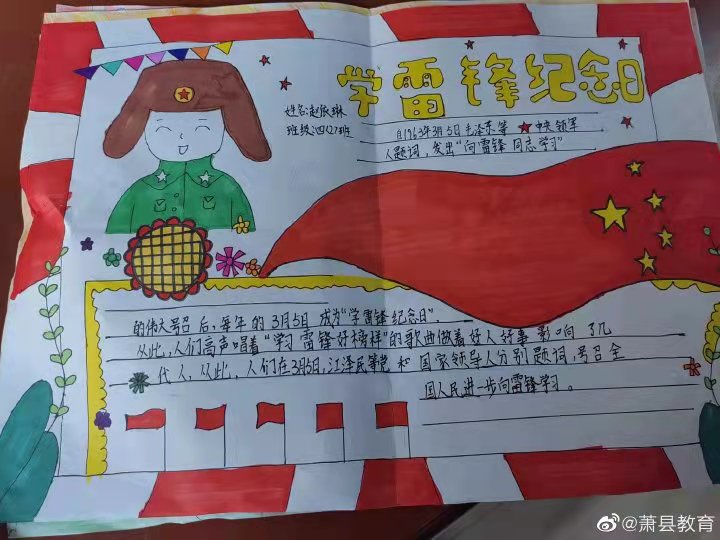 学雷锋纪念日
姓名:赵辰琳
班级:四(2)班
自1963年3月5日毛泽东等中央领军
人题词,发出“向雷锋同志学习”
的伟大号召后,每年的3月5日成为“学雷锋纪念日”.
从此,人们高声唱着“学习雷锋好榜样”的歌曲做着好人好事影响了几
代人,从此,人们在3月5日,江泽民等党和国家领导人分别题词,号召全
国人民进一步向雷锋学习。
@萧县教育